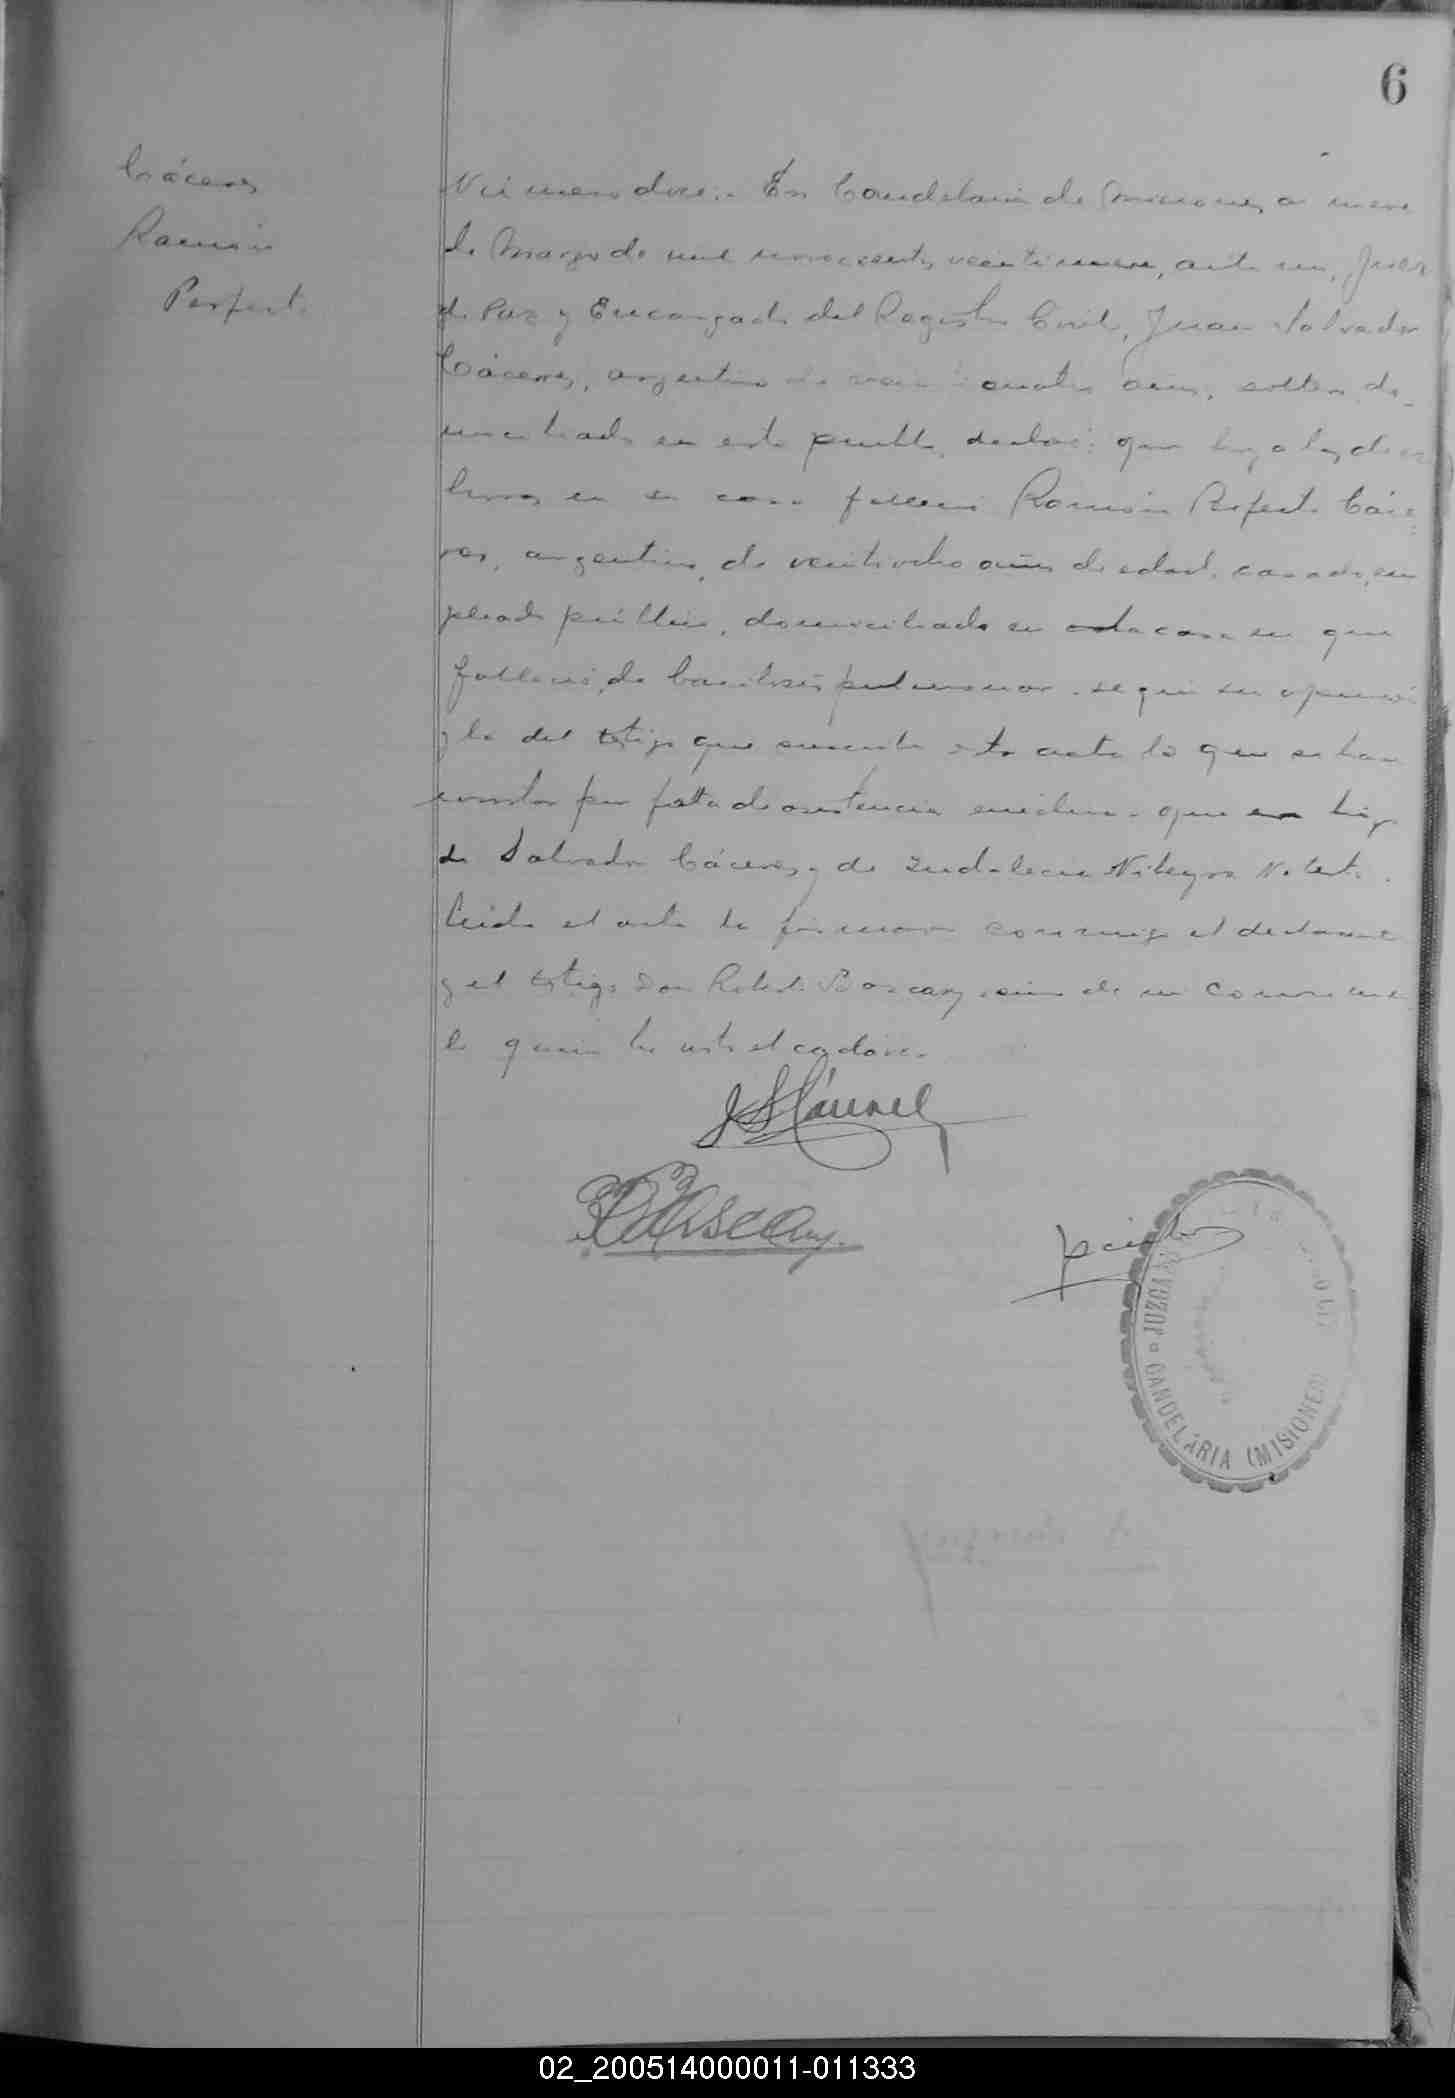 6
Cáceres
Ramón
Perfecto
Número doce.- En Candelaria de Misiones, a nueve
de Marzo de mil novecientos veintinueve, ante mi, Juez
de Paz y Encargado del Registro Civil, Juan Salvador
Cáceres, argentino de veinticuatro años, soltero, do-
miciliado en este pueblo, declaró: que hoy a las diez
horas en su casa falleció Ramón Perfecto Cáce-
res, argentino, de veintiocho años de edad, casado, em
pleado público, domiciliado en la casa en que
falleció, de bacilosis pulmonar, según su opinión
y la del testigo que suscribe esta acta lo que se hace
constar por falta de asistencia médica. que era hijo
de Salvador Cáceres y de Indalecia
Leída el acta la firmaron conmigo el declarante
y el testigo Don Roberto Bascary,
quien ha visto el cadáver.
JSCáceres
RBascary.
JUZGADO
CANDELARIA (MISIONES)
02_200514000011-011333